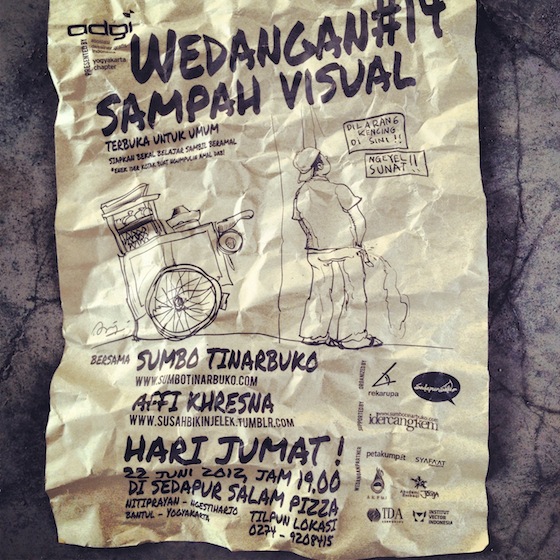 adgi
PRESENTED BY
yogyakarta
chapter
WEDANGAN#14
SAMPAH VISUAL
TERBUKA UNTUK UMUM
SIAPKAN BEKAL BELAJAR SAMBIL BERAMAL
DILARANG
KENCING
DI SINI!!
NGEYEL!!
SUNAT!!
BERSAMA SUMBO TINARBUKO
WWW.SUMBOTINARBUKO.COM
AFFI KHRESNA
WWW.SUSAHBIKINJELEK.TUMBLR.COM
HARI JUMAT!
22 JUNI 2012, JAM 19.00
DI SEDAPUR SALAM PIZZA
NITIPRAYAN - NGESTIHARJO
BANTUL - YOGYAKARTA
TILPUN LOKASI
0274 - 9208415
ORGANIZED BY
rekarupa
SUPPORTED BY
idercangkem
petakumpit
SYAFAAT
TDA
INSTITUT
VECTOR
INDONESIA